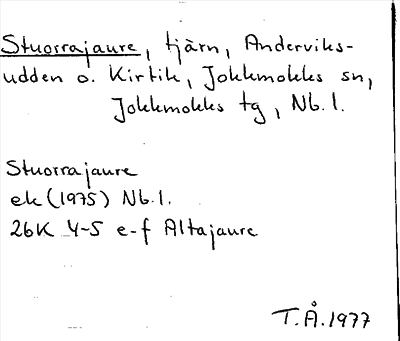 Stuorrajaure, tjärn, Anderviks-
udden o. Kirtik, Jokkmokks sn,
Jokkmokks tg, Nb. l.
Stuorrajaure
ek (1975) Nb. l.
26K 4-5 e-f Altajaure
T.Å. 1977